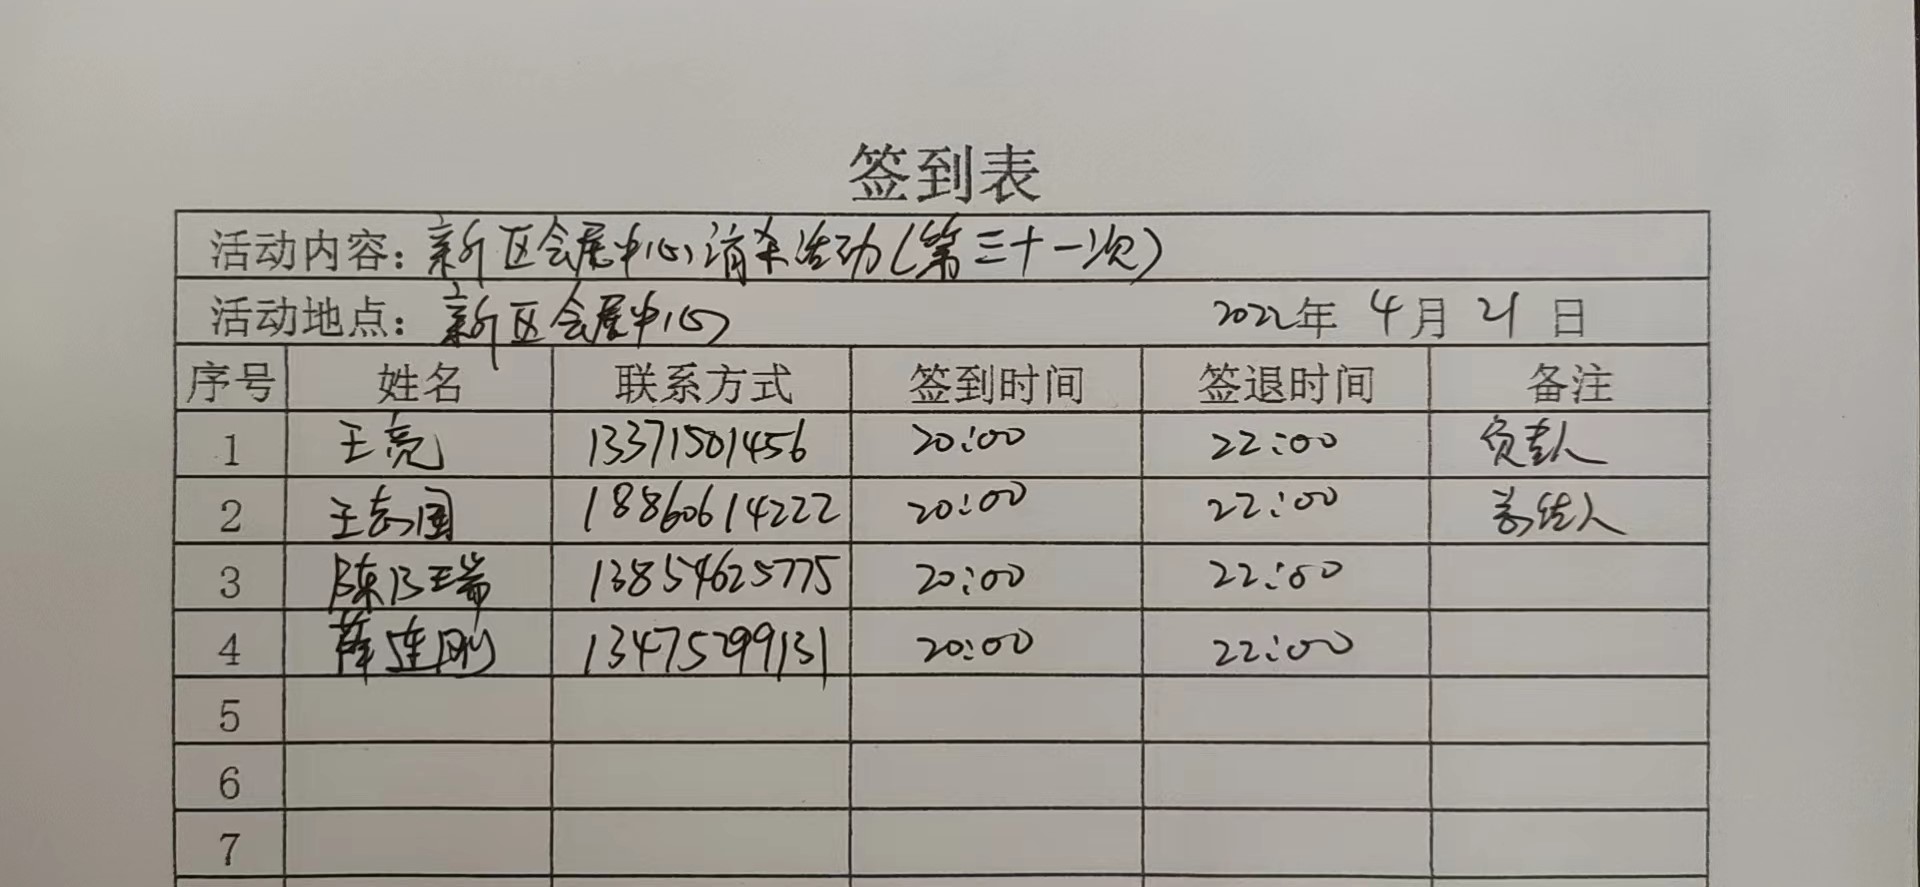 签到表
活动内容：新区会展中心消杀活动（第三十一次）
活动地点：新区会展中心 2022年 4月 21日
序号 姓名 联系方式 签到时间 签退时间 备注
1 王亮 13371501456 20:00 22:00 负责人
2 王志国 18860614222 20:00 22:00 总结人
3 陈乃瑞 13854625775 20:00 22:00
4 薛连刚 13475299131 20:00 22:00
5
6
7